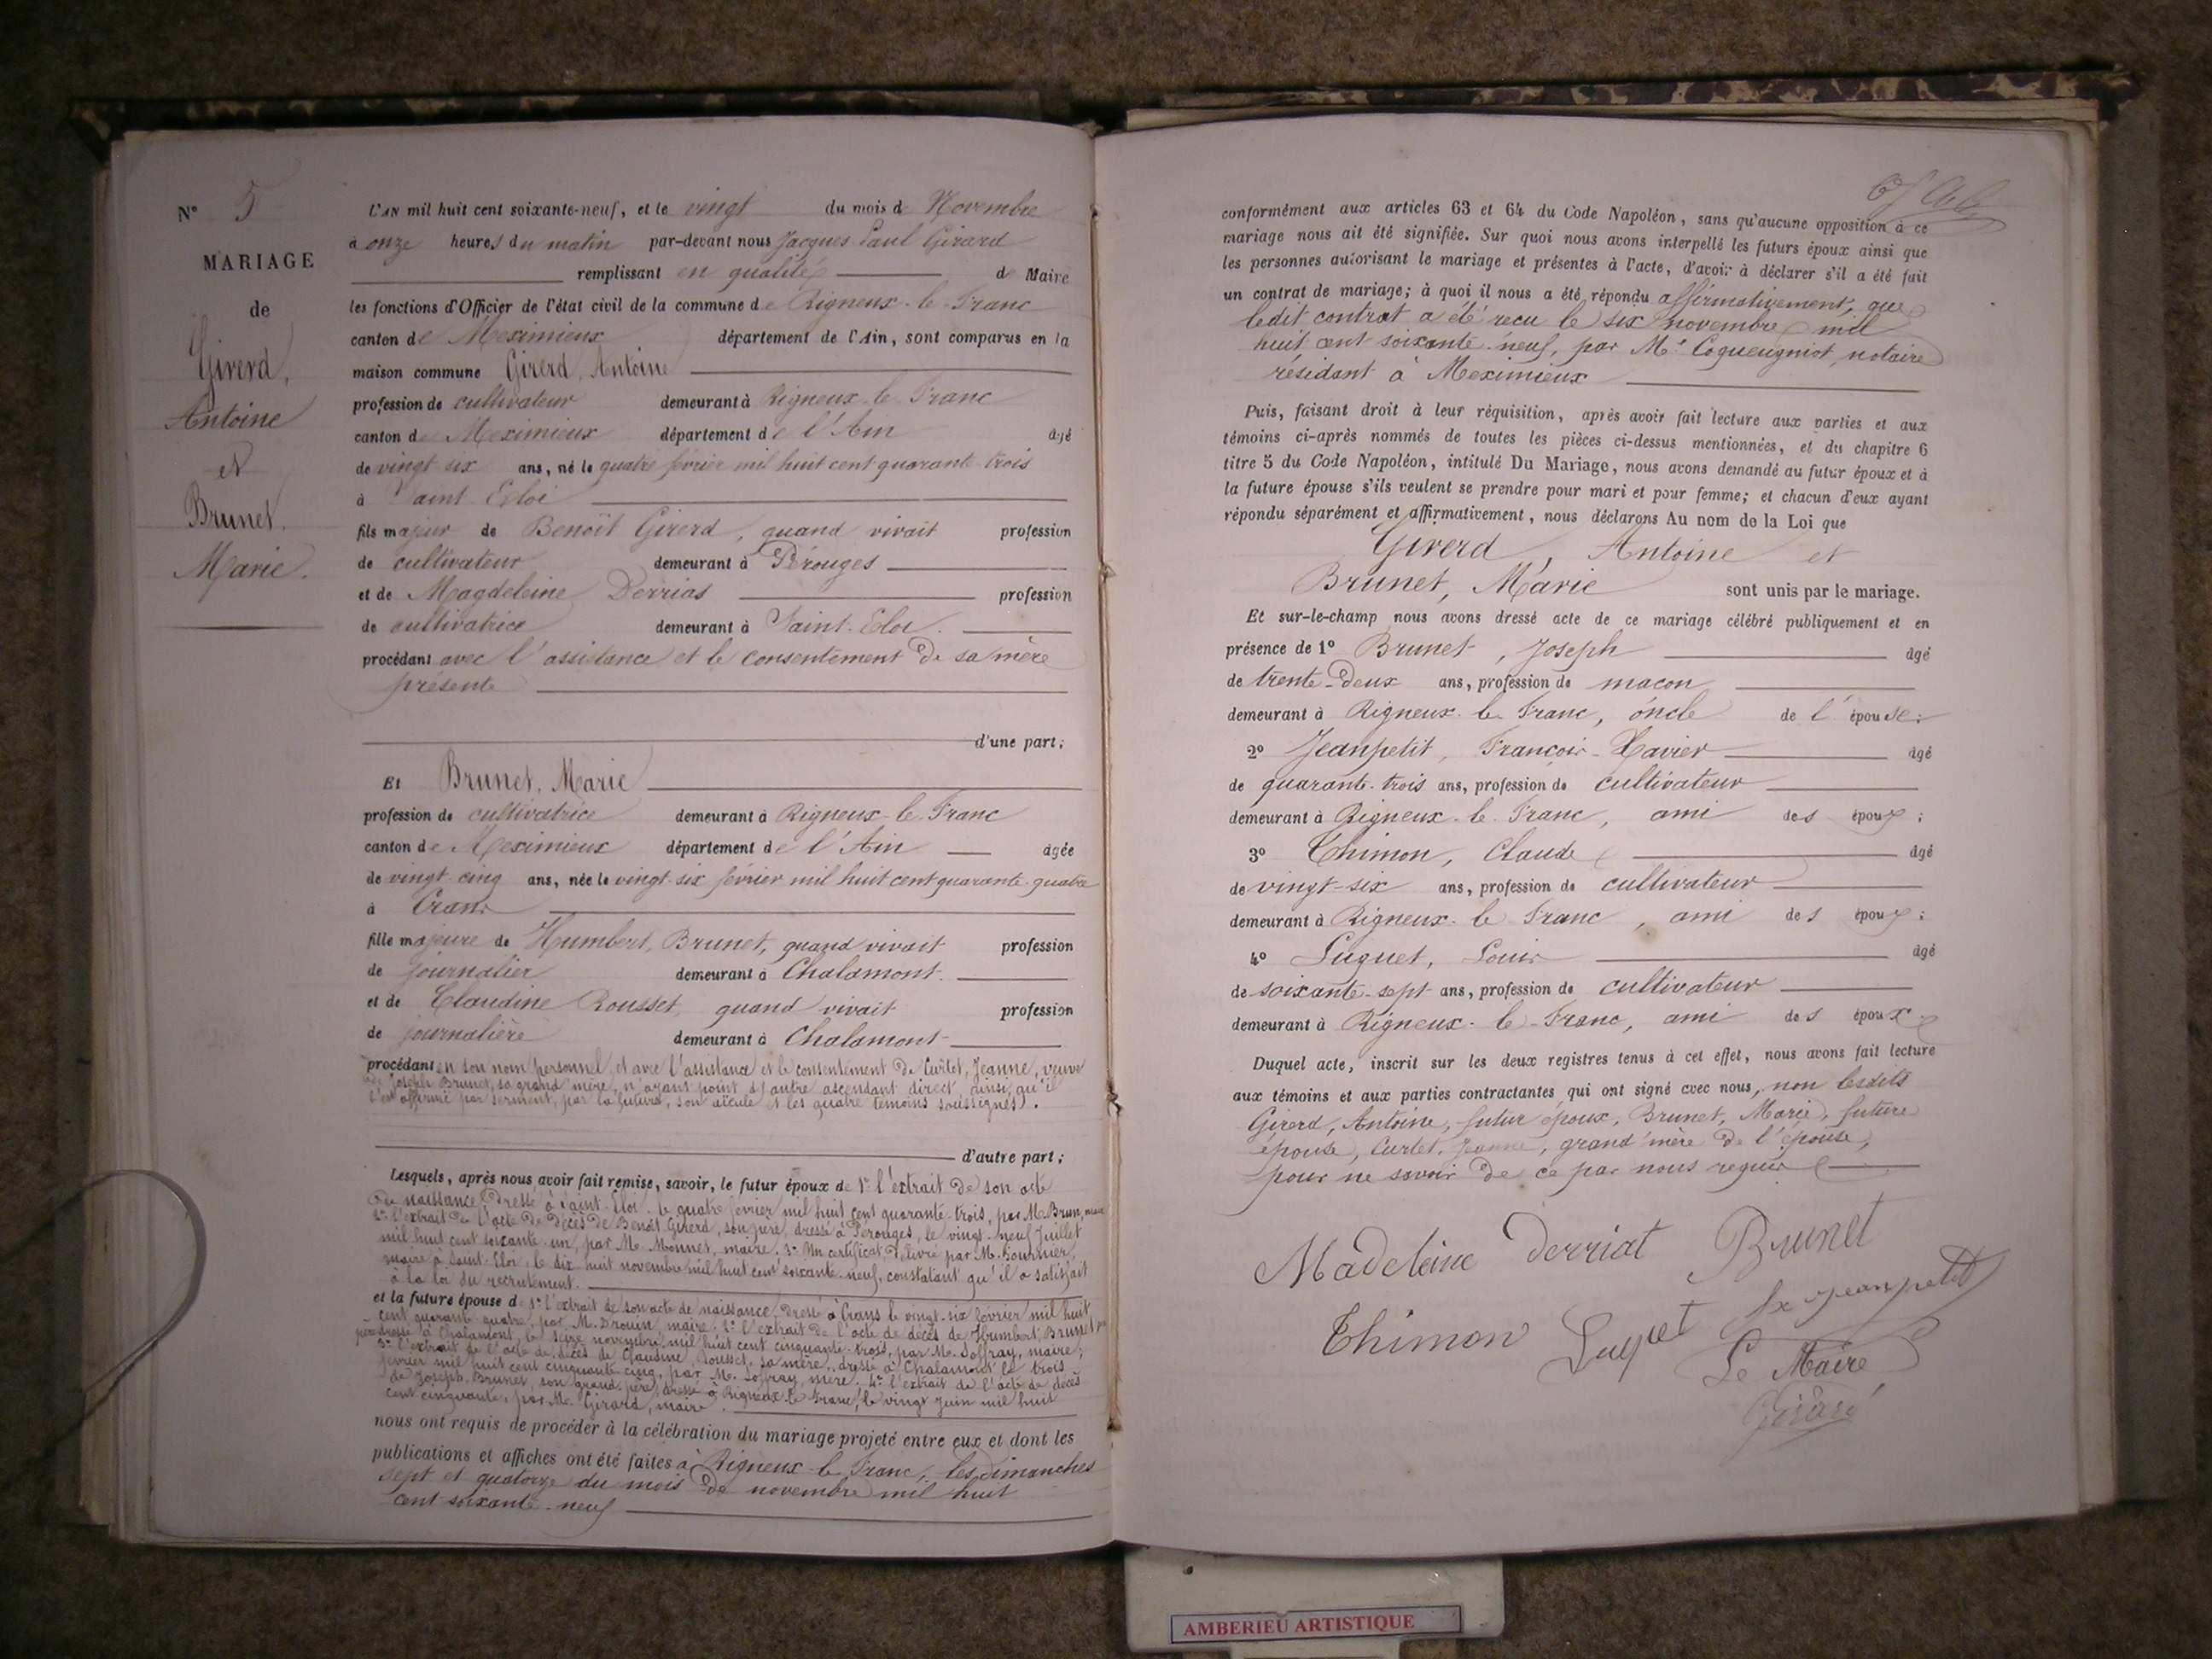 N° 5
MARIAGE
de
Girerd,
Antoine
et
Brunet,
Marie.
L'AN mil huit cent soixante-neuf, et le vingt du mois de Novembre
à onze heures du matin par-devant nous Jacques Paul Girard
remplissant en qualité de Maire
les fonctions d'Officier de l'état civil de la commune de Rigneux-le-Franc
canton de Meximieux département de l'Ain, sont comparus en la
maison commune Girerd, Antoine
profession de cultivateur demeurant à Rigneux-le-Franc
canton de Meximieux département de l'Ain âgé
de vingt-six ans, né le quatre février mil huit cent quarante-trois
à Saint-Eloi
fils majeur de Benoit Girerd, quand vivait profession
de cultivateur demeurant à Pérouges
et de Magdeleine Derrias profession
de cultivatrice demeurant à Saint-Eloi.
procédant avec l'assistance et le consentement de sa mère
présente
d'une part;
Et Brunet, Marie
profession de cultivatrice demeurant à Rigneux-le-Franc
canton de Meximieux département de l'Ain âgée
de vingt-cinq ans, née le vingt-six février mil huit cent quarante-quatre
à Crans
fille majeure de Humbert Brunet, quand vivait profession
de journalier demeurant à Chalamont.
et de Claudine Rousset, quand vivait profession
de journalière demeurant à Chalamont
procédant en son nom personnel, et avec l'assistance et le consentement de Curtet, Jeanne, veuve
de Joseph Brunet, sa grand'mère, n'ayant point d'autre ascendant direct ainsi qu'il
l'est affirmé par serment, par la future, son aïeule et les quatre témoins soussignés.
d'autre part;
Lesquels, après nous avoir fait remise, savoir, le futur époux de 1° l'extrait de son acte
de naissance dressé à Saint-Eloi, le quatre février mil huit cent quarante-trois, par M. Brun, maire
2° l'extrait de l'acte de décès de Benoit Girerd, son père, dressé à Pérouges, le vingt-neuf Juillet
mil huit cent soixante-un, par M. Monnet, maire. 3° Un certificat délivré par M. Bournier,
maire à Saint-Eloi, le dix-huit novembre mil huit cent soixante-neuf, constatant qu'il a satisfait
à la loi du recrutement.
et la future épouse de 1° l'extrait de son acte de naissance, dressé à Crans le vingt-six février mil huit
cent quarante-quatre, par M. Drouin, maire. 2° l'extrait de l'acte de décès de Humbert Brunet, son
père dressé à Chalamont, le seize novembre mil huit cent cinquante-trois, par M. Soffray, maire;
3° l'extrait de l'acte de décès de Claudine Rousset, sa mère, dressé à Chalamont le trois
février mil huit cent cinquante-cinq, par M. Soffray, maire. 4° l'extrait de l'acte de décès
de Joseph Brunet, son grand-père, dressé à Rigneux-le-Franc, le vingt Juin mil huit
cent cinquante, par M. Girard, maire.
nous ont requis de procéder à la célébration du mariage projeté entre eux et dont les
publications et affiches ont été faites à Rigneux-le-Franc, les dimanches
sept et quatorze du mois de novembre mil huit
cent soixante-neuf
conformément aux articles 63 et 64 du Code Napoléon, sans qu'aucune opposition à ce
mariage nous ait été signifiée. Sur quoi nous avons interpellé les futurs époux ainsi que
les personnes autorisant le mariage et présentes à l'acte, d'avoir à déclarer s'il a été fait
un contrat de mariage; à quoi il nous a été répondu affirmativement, que
ledit contrat a été reçu le six novembre mil
huit cent soixante-neuf, par Me Coqueugniot, notaire
résidant à Meximieux
Puis, faisant droit à leur réquisition, après avoir fait lecture aux parties et aux
témoins ci-après nommés de toutes les pièces ci-dessus mentionnées, et du chapitre 6
titre 5 du Code Napoléon, intitulé Du Mariage, nous avons demandé au futur époux et à
la future épouse s'ils veulent se prendre pour mari et pour femme; et chacun d'eux ayant
répondu séparément et affirmativement, nous déclarons Au nom de la Loi que
Girerd, Antoine et
Brunet, Marie sont unis par le mariage.
Et sur-le-champ nous avons dressé acte de ce mariage célébré publiquement et en
présence de 1° Brunet, Joseph âgé
de trente-deux ans, profession de maçon
demeurant à Rigneux-le-Franc, oncle de l'épouse;
2° Jeanpetit, François-Xavier âgé
de quarante-trois ans, profession de cultivateur
demeurant à Rigneux-le-Franc, ami des époux;
3° Thimon, Claude âgé
de vingt-six ans, profession de cultivateur
demeurant à Rigneux-le-Franc, ami des époux;
4° Luquet, Louis âgé
de soixante-sept ans, profession de cultivateur
demeurant à Rigneux-le-Franc, ami des époux
Duquel acte, inscrit sur les deux registres tenus à cet effet, nous avons fait lecture
aux témoins et aux parties contractantes qui ont signé avec nous, non lesdits
Girerd, Antoine, futur époux, Brunet, Marie, future
épouse, Curtet, Jeanne, grand'mère de l'épouse,
pour ne savoir de ce par nous requis
Madeleine derriat Brunet
Thimon Luquet fx jeanpetit
Le Maire
Girard
AMBERIEU ARTISTIQUE